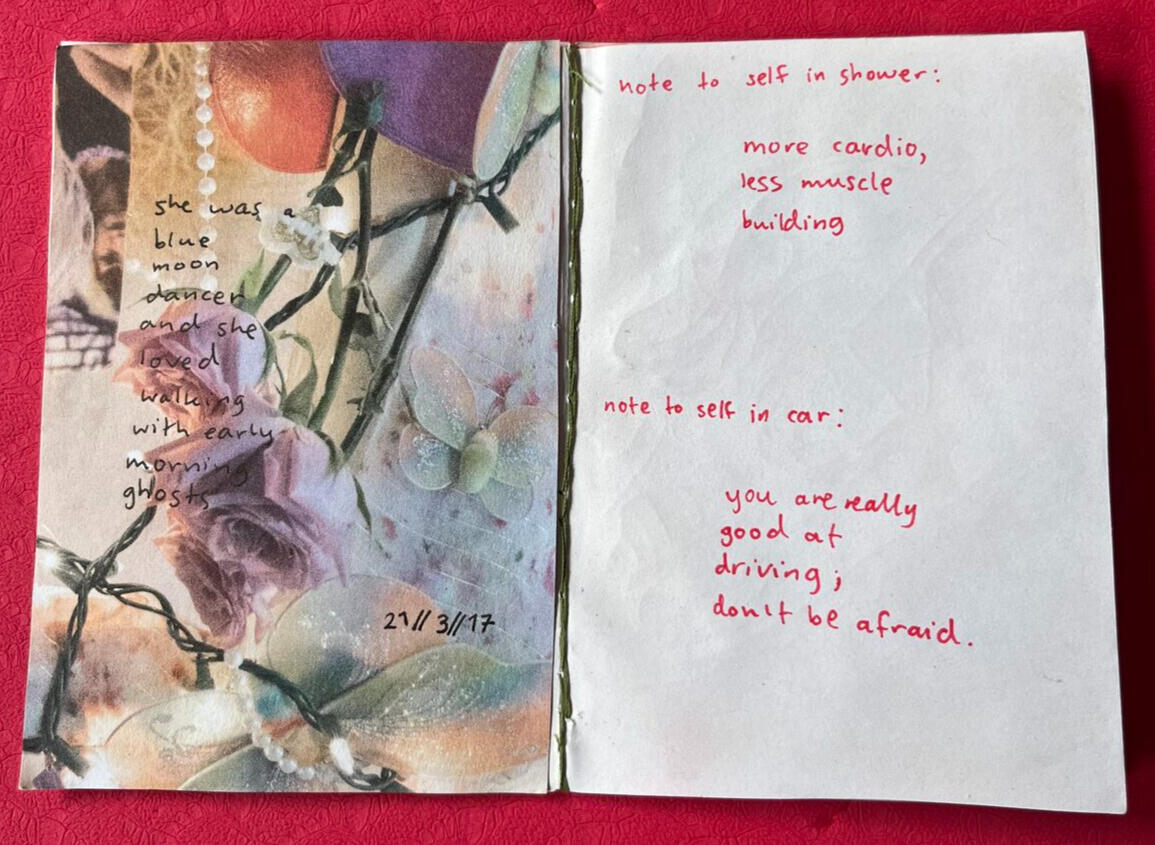 she was a
blue
moon
dancer
and she
loved
walking
with early
morning
ghosts
21//3//17
note to self in shower:
more cardio,
less muscle
building
note to self in car:
you are really
good at
driving;
don't be afraid.